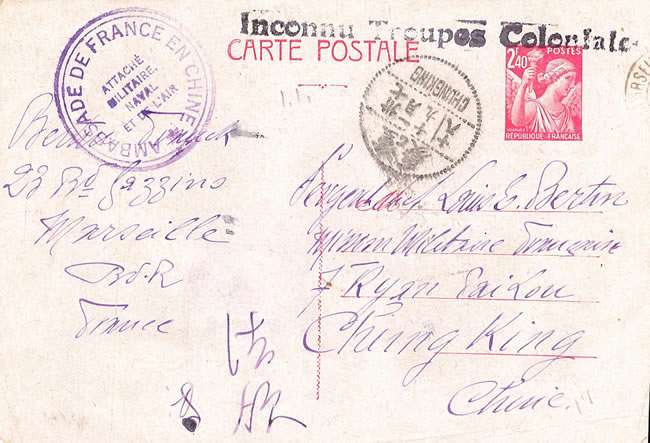 Inconnu Troupes Coloniale
CARTE POSTALE
AMBASSADE DE FRANCE EN CHINE
ATTACHÉ
MILITAIRE,
NAVAL
ET DE L'AIR
2F40
POSTES
RÉPUBLIQUE FRANÇAISE
CHUNGKING
23 Bd Gazzino
Marseille
B.d.R
France
Louis E. Bertin
Mission Militaire Française
7 Kyan Tai Lou
Chung King
Chine.